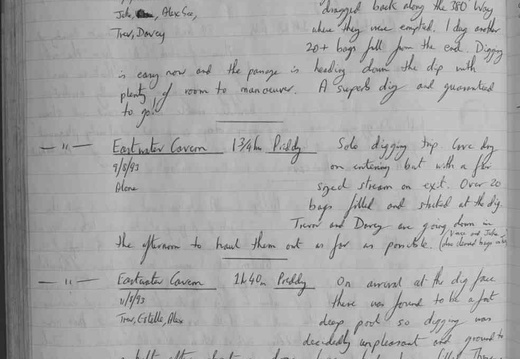 dragged back along the 380' Way
Jake, Alex Gee,
where they were emptied. 1 day another
Trev, Davey
20+ bags full from the end. Digging
is easy now and the passage is heading down the dip with
plenty of room to manoeuver. A superb dig and guaranteed
to go!
— " — Eastwater Cavern 1 3/4 hr Priddy Solo digging trip. Cave dry
9/8/93 on entering but with a fair
Alone sized stream on exit. Over 20
bags filled and stacked at the dig.
Trevor and Davey are going down in
the afternoon to haul them out as far as possible. (Vince and Jake also cleared bags
— " — Eastwater Cavern 1h 40m Priddy On arrival at the dig face
11/8/93 there was found to be a foot
Trev, Estelle, Alex deep pool so digging was
decidedly unpleasant and ground to